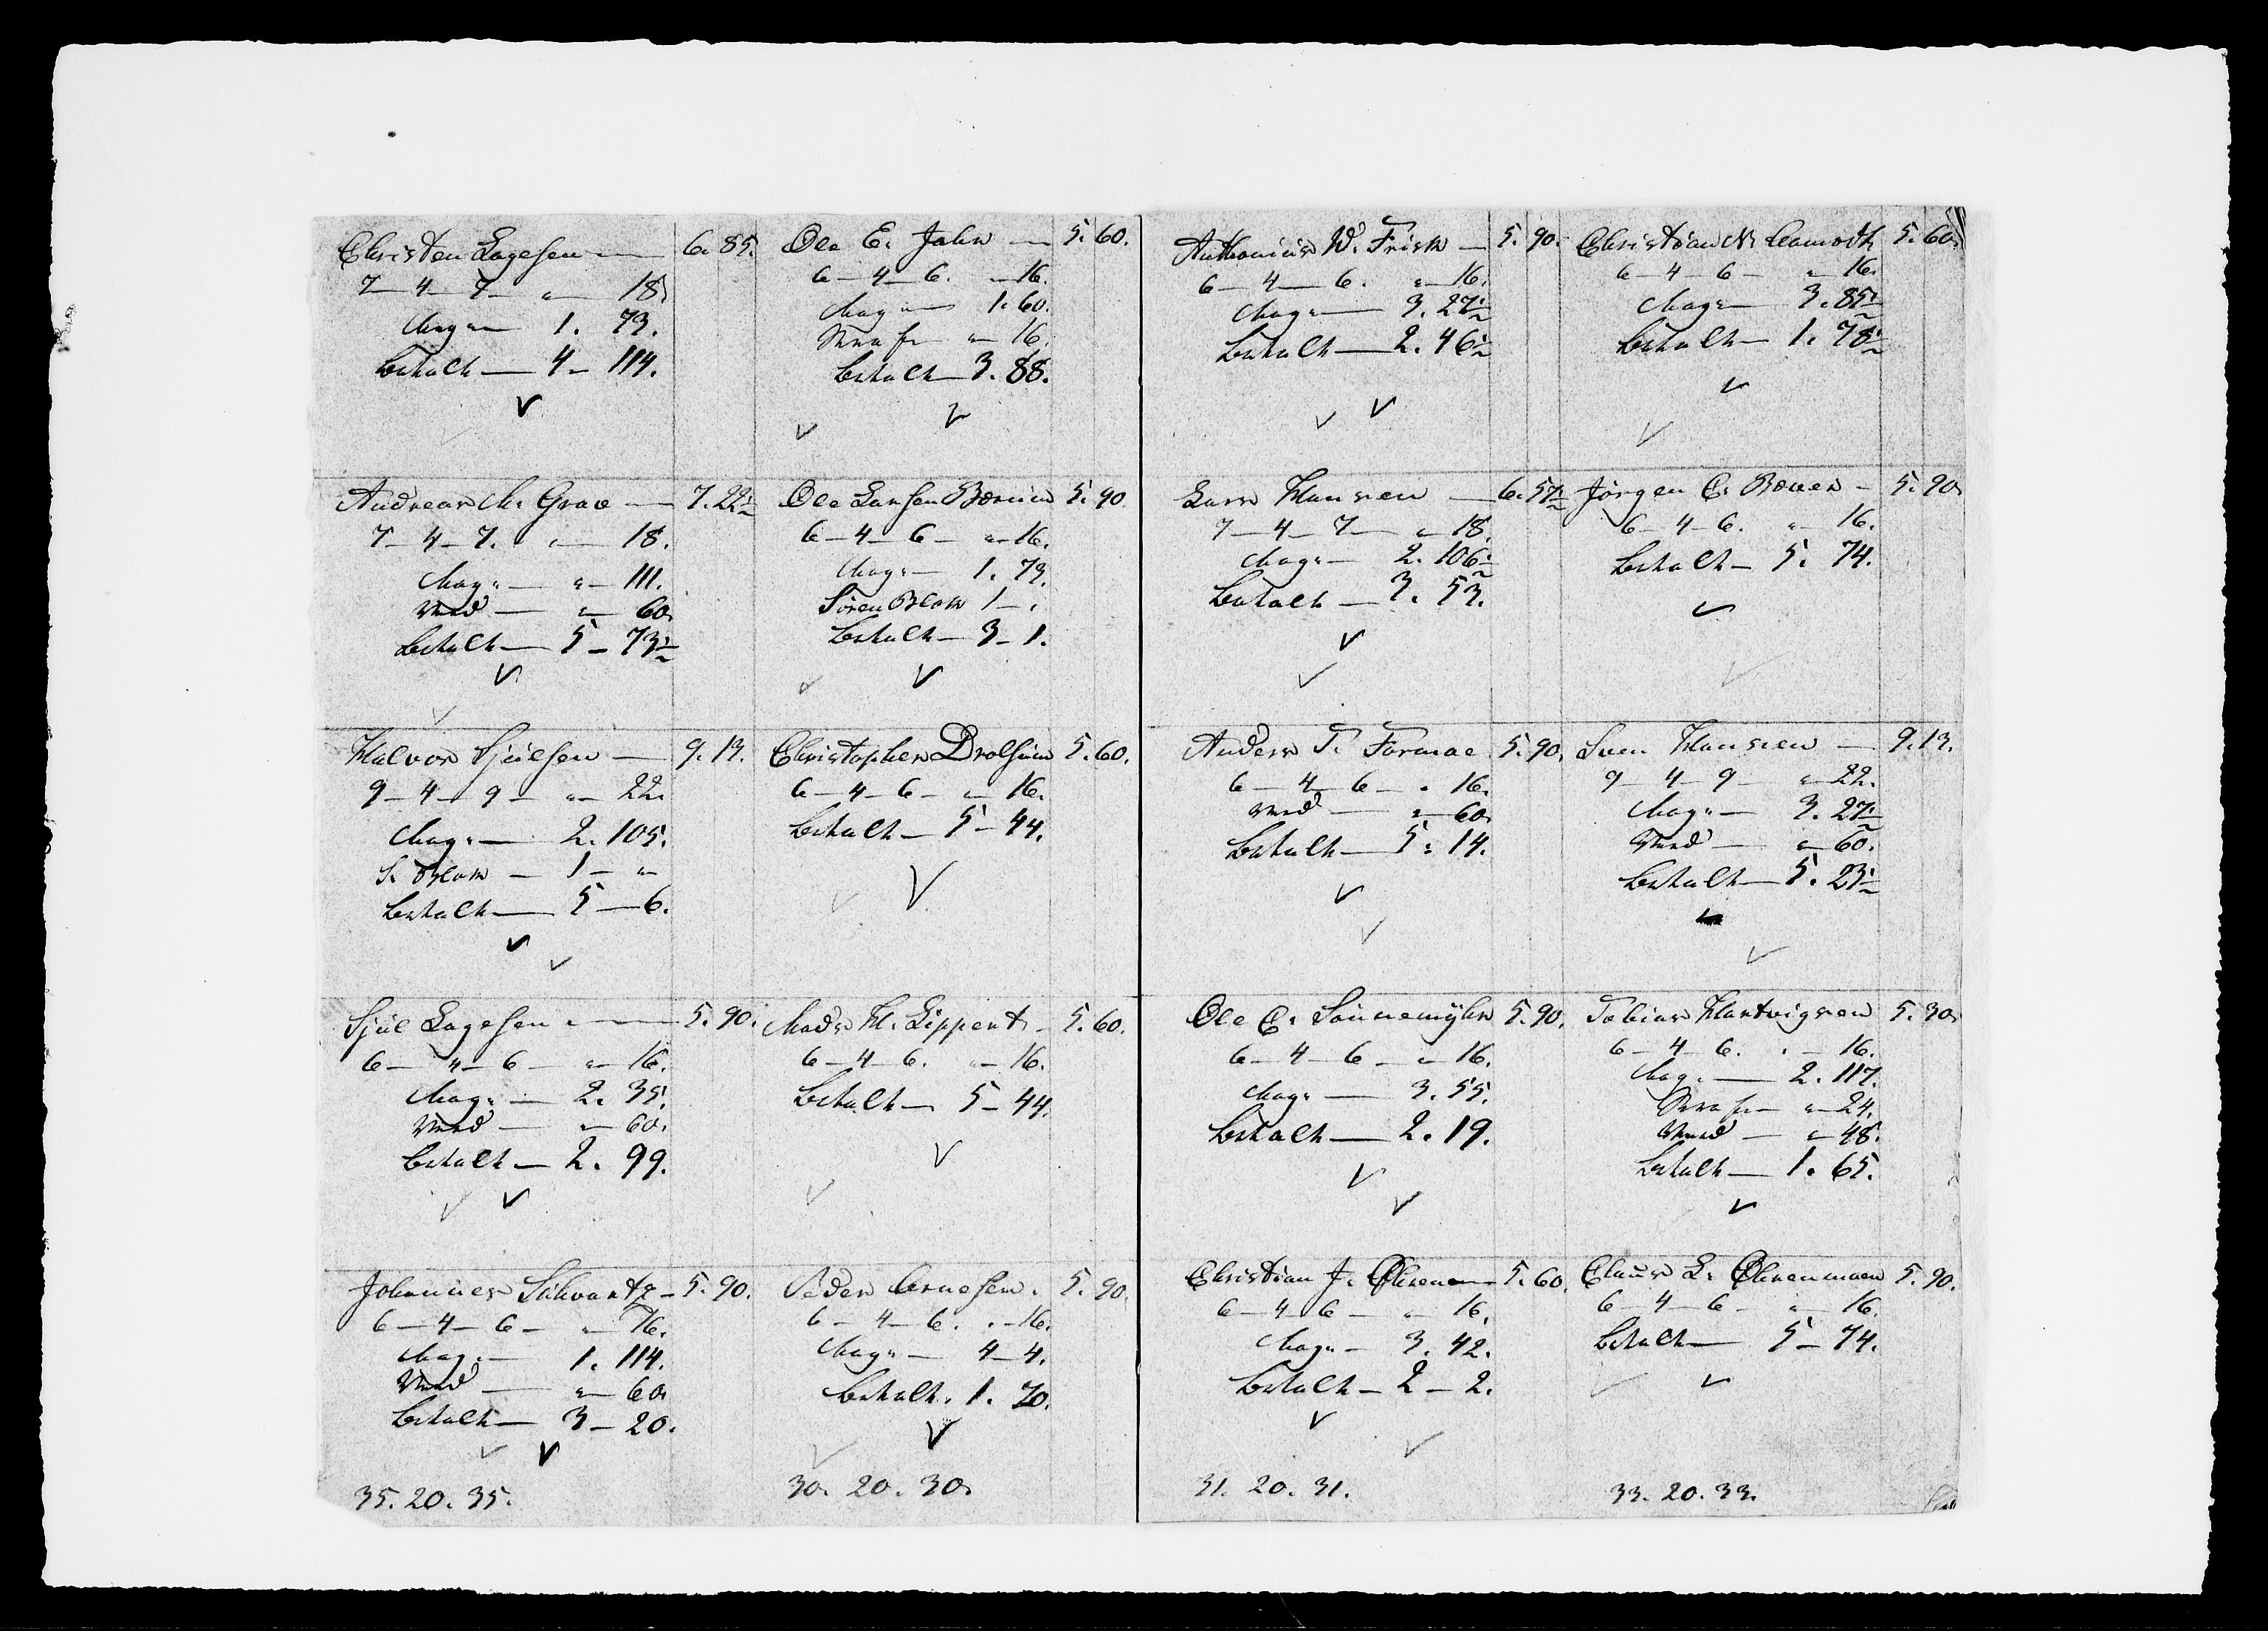 Christen Lagesen — 6. 85.
7 — 4 — 7 — " — 18.
Mag" — 1. 73.
Betalt — 4 — 114.
Andreas M. Grae — 7. 22½
7 — 4 — 7. " — 18.
Mag" — " — 111.
Meed — " — 60.
Betalt — 5 — 73½
Halvor Sjulsen — 9. 13.
9 — 4 — 9 — " — 22.
Mag" — 2. 105.
S. Blom — 1 — "
Betalt — 5 — 6.
Sjul Lagesen — 5. 90.
6 — 4 — 6 — " — 16.
Mag" — 2. 35.
Meed — " — 60.
Betalt — 2. 99.
Johannes Schvartz — 5. 90.
6 — 4 — 6 — " — 16.
Mag" — 1. 114.
Meed — " — 60.
Betalt — 3 — 20.
35. 20. 35.
Ole E. Jahr — 5. 60.
6 — 4 — 6. " — 16.
Mag" — 1. 60.
" — 16.
Betalt — 3. 88.
Ole Larsen 5. 90.
6 — 4 — 6 — " — 16.
Mag" — 1. 73.
Søren Blom 1 — "
Betalt — 3 — 1.
Christopher Drolsum 5. 60.
6 — 4 — 6 — " — 16.
Betalt — 5 — 44.
Mads H. Lippert — 5. 60.
6 — 4 — 6. " — 16.
Betalt — 5 — 44.
Peder Arnesen. 5. 90.
6 — 4 — 6. " — 16.
Mag" — 4 — 4.
Betalt. 1. 70.
30. 20. 30.
Anthonius W. Frisk — 5. 90.
6 — 4 — 6. " — 16.
Mag" — 3. 27½
Betalt — 2. 46½
Lars Hansen — 6. 57½
7 — 4 — 7 — " — 18.
Mag" — 2. 106½
Betalt — 3. 53.
Anders T. Formoe 5. 90.
6 — 4 — 6 — " 16.
Meed — " — 60.
Betalt — 5 " 14.
Ole C. Sønnemyhr 5. 90.
6 — 4 — 6 — " — 16.
Mag" — 3. 55.
Betalt — 2. 19.
Christian J. — 5. 60.
6 — 4 — 6 — " — 16.
Mag" — 3. 42.
Betalt — 2 — 2.
31. 20. 31.
Christian N. 5. 60.
6 — 4 — 6 — " — 16.
Mag" — 3. 85½
Betalt — 1. 78½
Jørgen C. — 5. 90.
6 — 4 — 6. " — 16.
Betalt — 5. 74.
Sven Hansen — 9. 13.
9 — 4 — 9 — " — 22.
Mag" — 3. 27½
Meed — " — 60.
Betalt — 5. 23½
Tobias Hartvigsen 5. 30.
6 — 4 — 6. " — 16.
Mag" — 2. 117.
" — 24.
Meed — " — 48.
Betalt — 1. 65.
Claus L. 5. 90.
6 — 4 — 6 — " — 16.
Betalt — 5 — 74.
33. 20. 33.